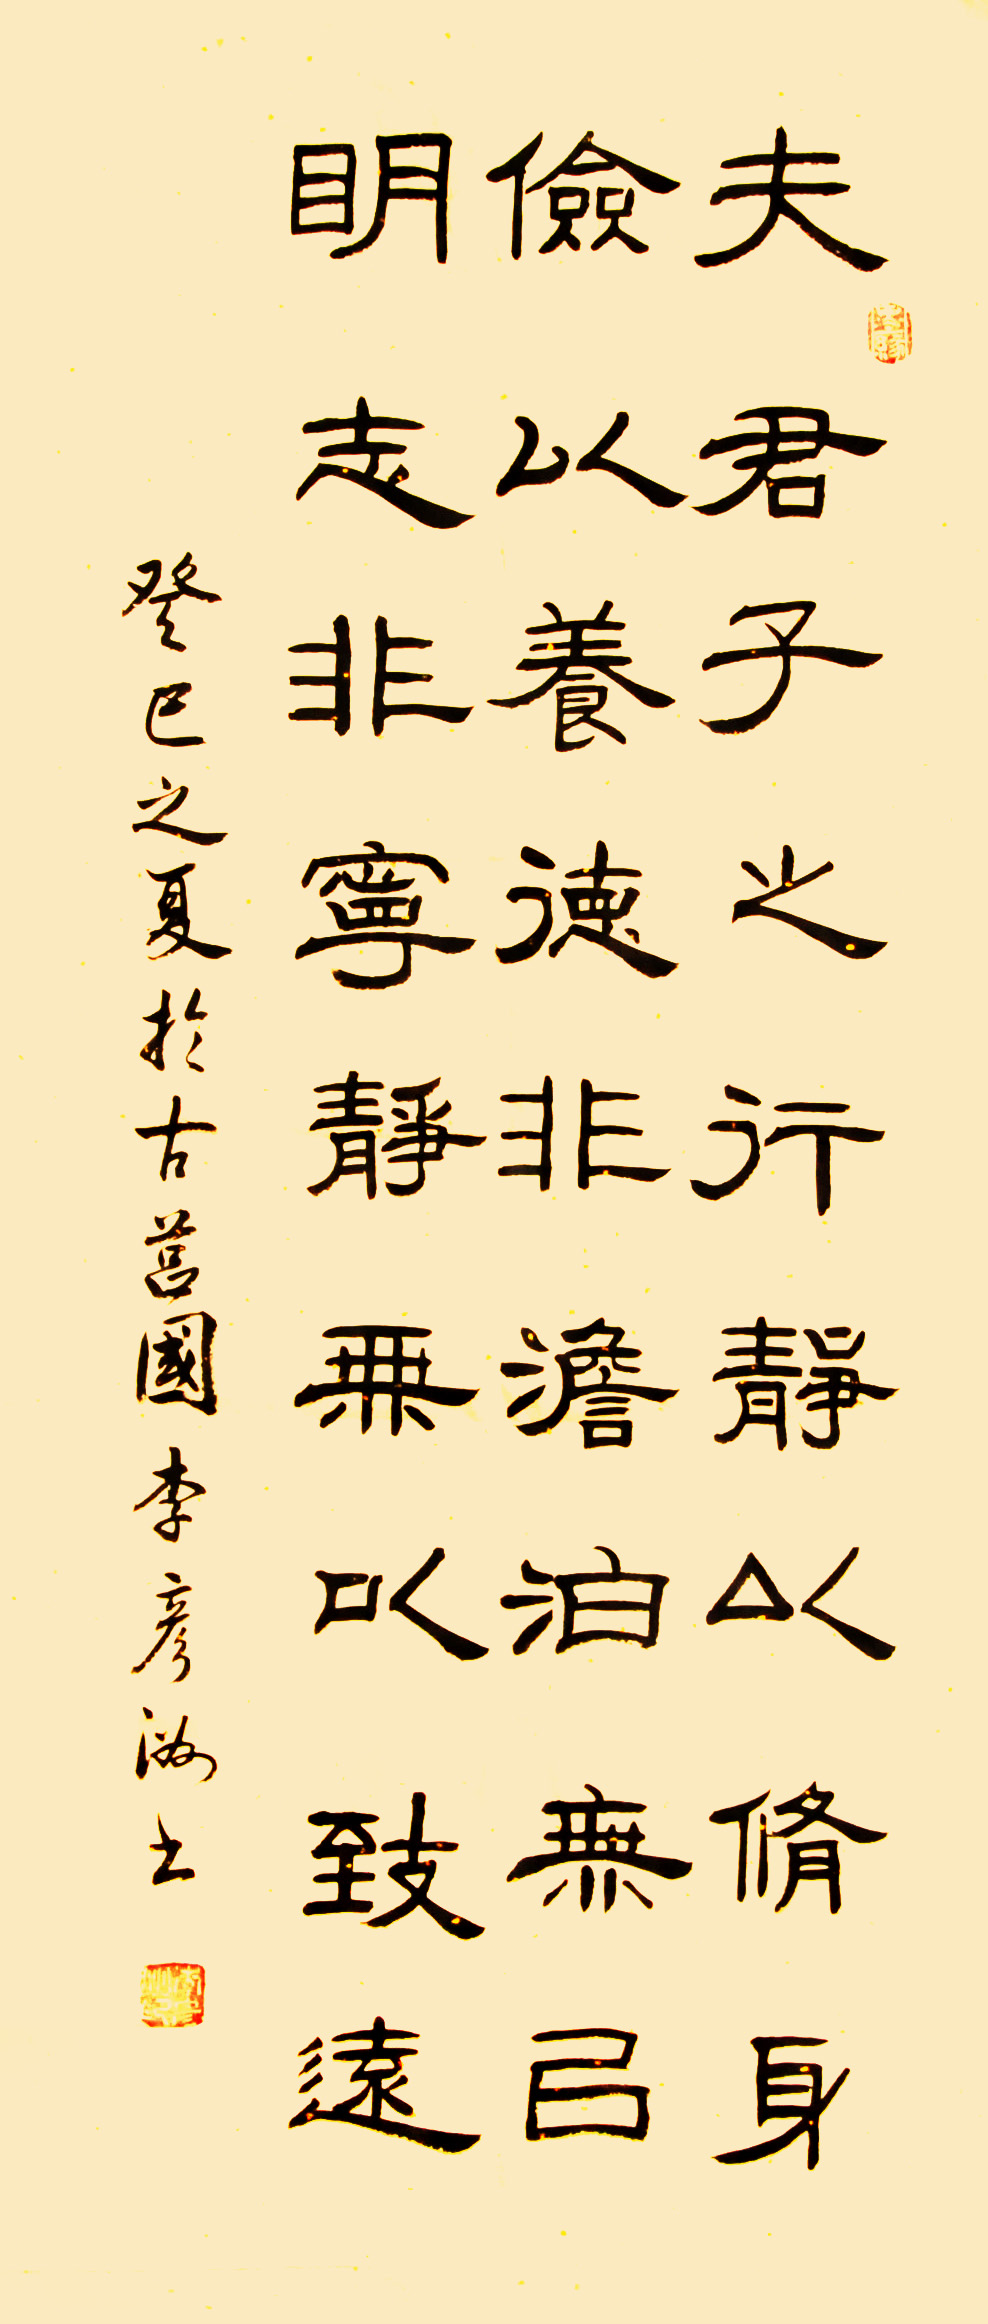 夫君子之行靜以脩身
儉以養德非澹泊無㠯
明志非寧靜無以致遠
癸巳之夏於古莒國李彥海書